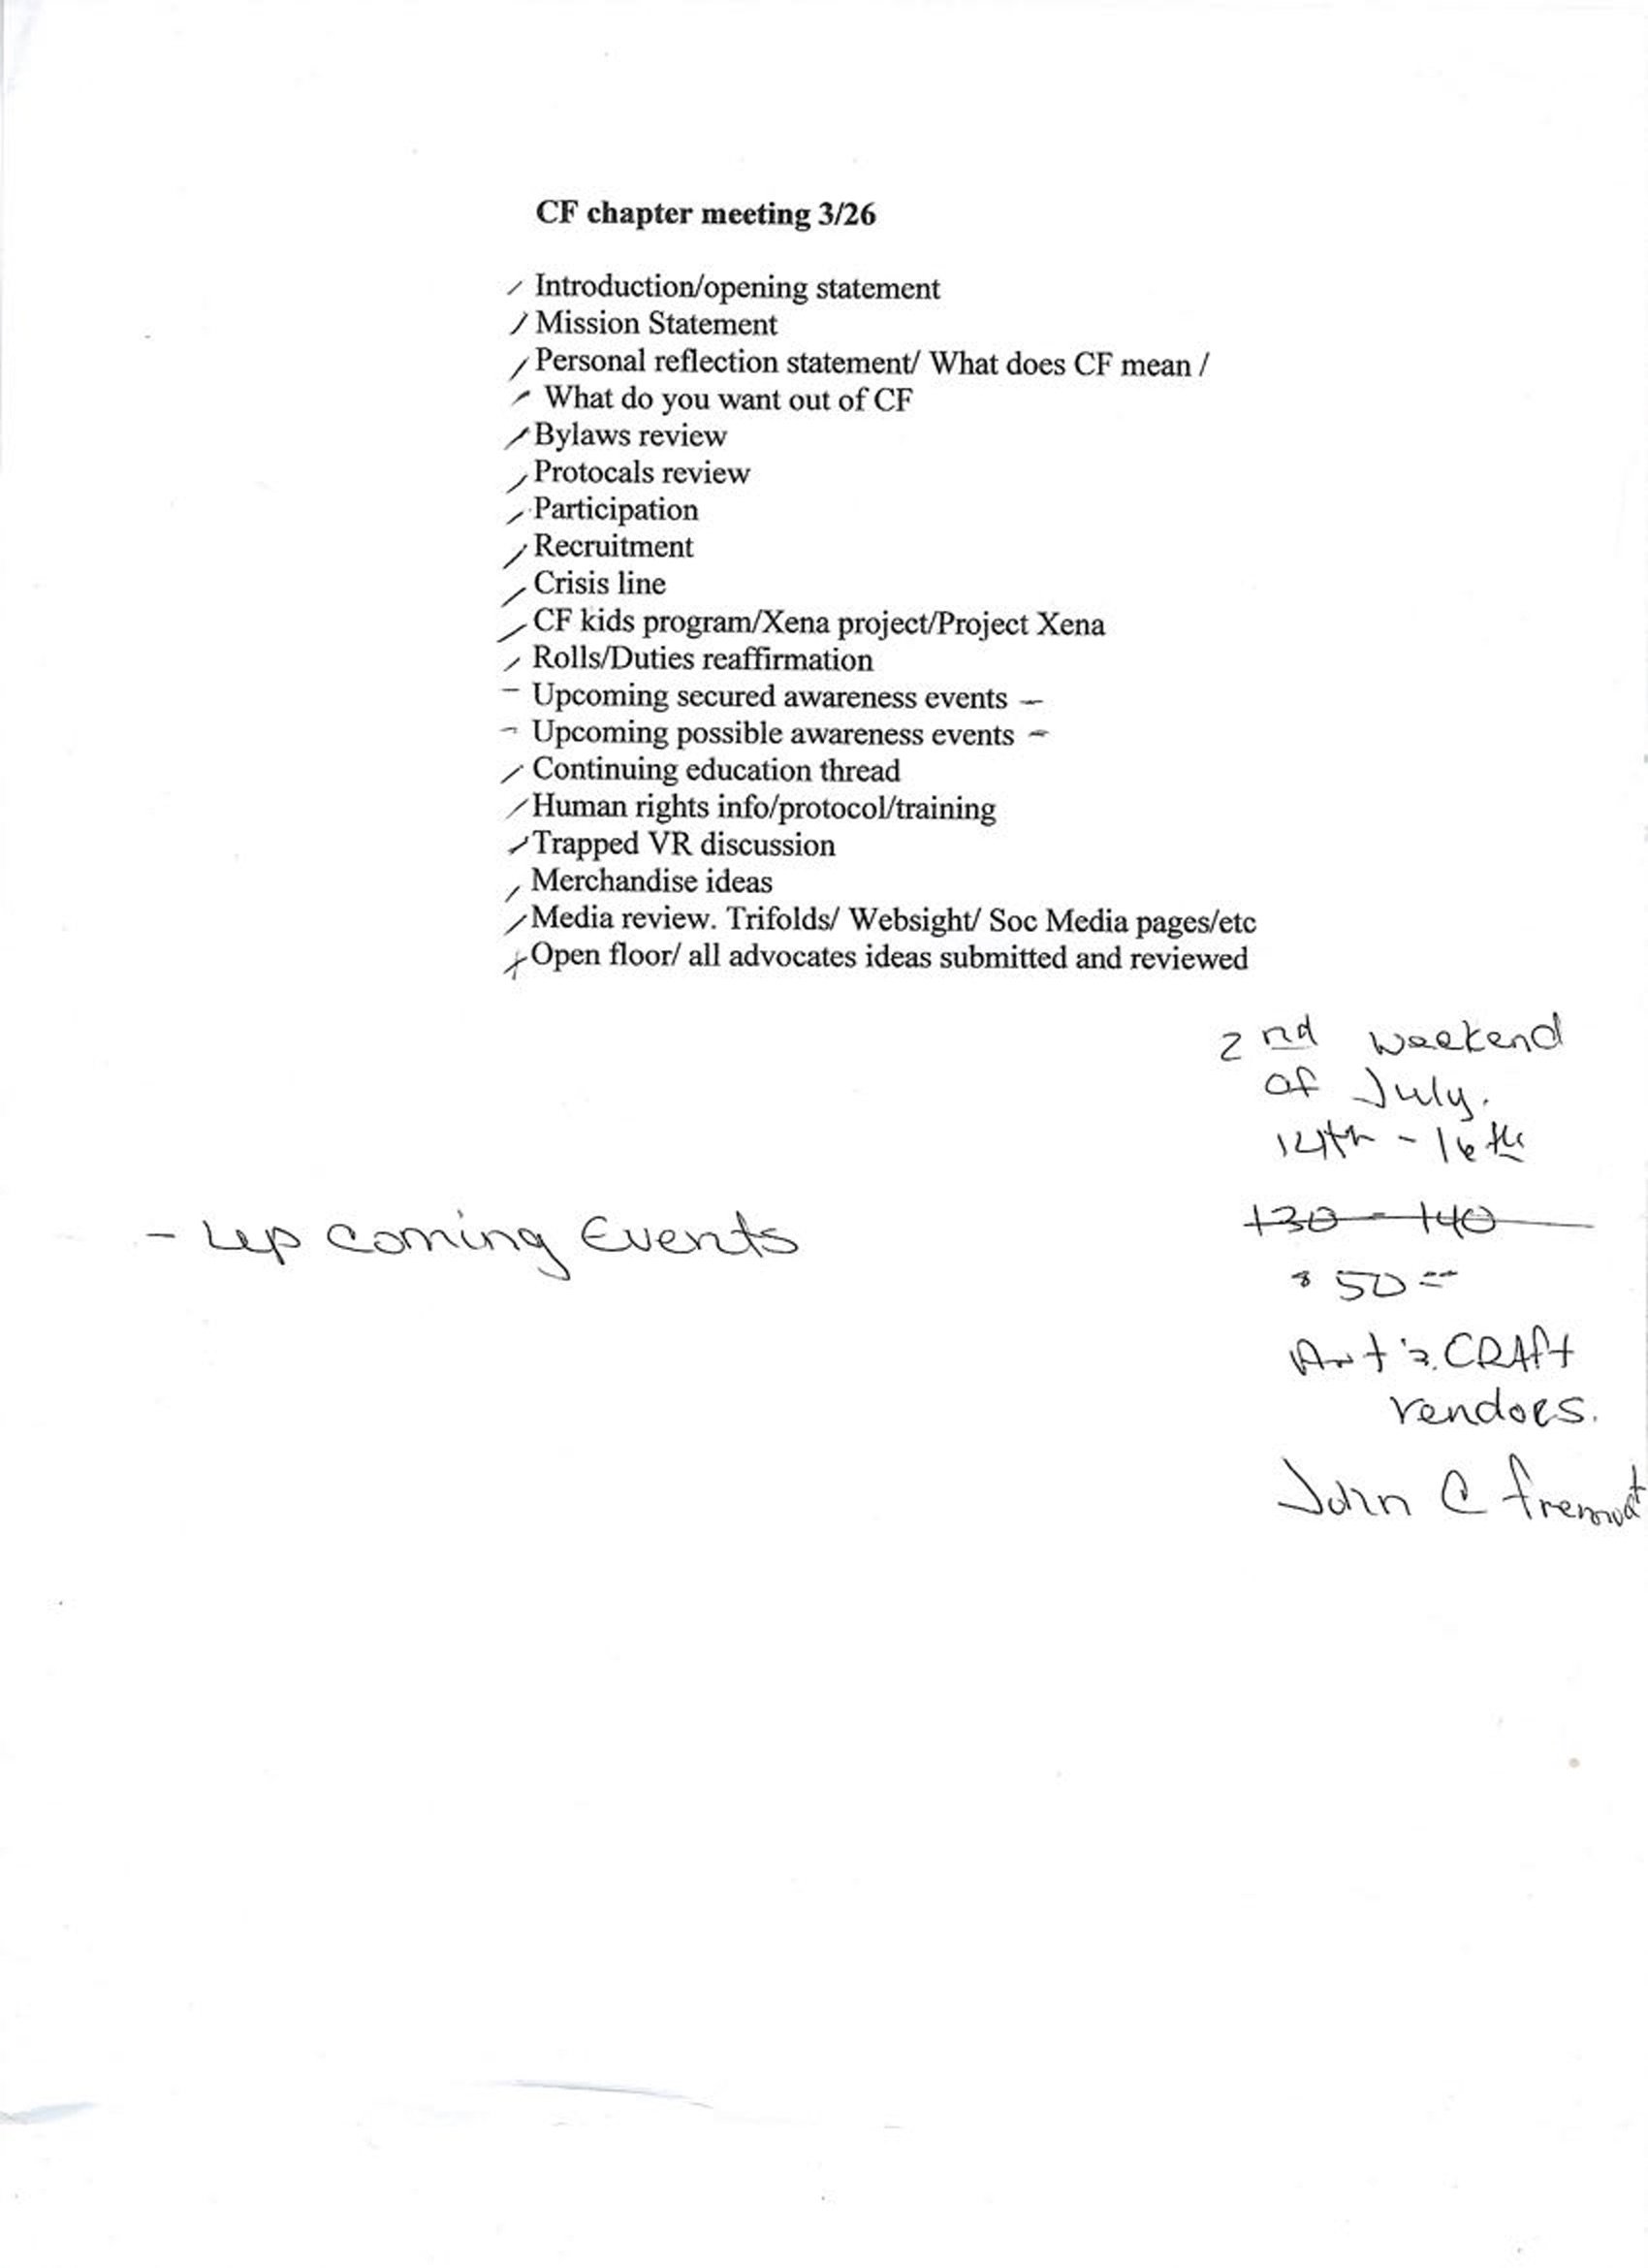 CF chapter meeting 3/26
Introduction/opening statement
Mission Statement
Personal reflection statement/ What does CF mean /
What do you want out of CF
Bylaws review
Protocals review
Participation
Recruitment
Crisis line
CF kids program/Xena project/Project Xena
Rolls/Duties reaffirmation
- Upcoming secured awareness events -
- Upcoming possible awareness events -
Continuing education thread
Human rights info/protocol/training
Trapped VR discussion
Merchandise ideas
Media review. Trifolds/ Websight/ Soc Media pages/etc
Open floor/ all advocates ideas submitted and reviewed
2nd weekend
of July.
14th - 16th
130 - 140
- Up coming Events
$ 50
Art & CRAft
vendors.
John C fremont